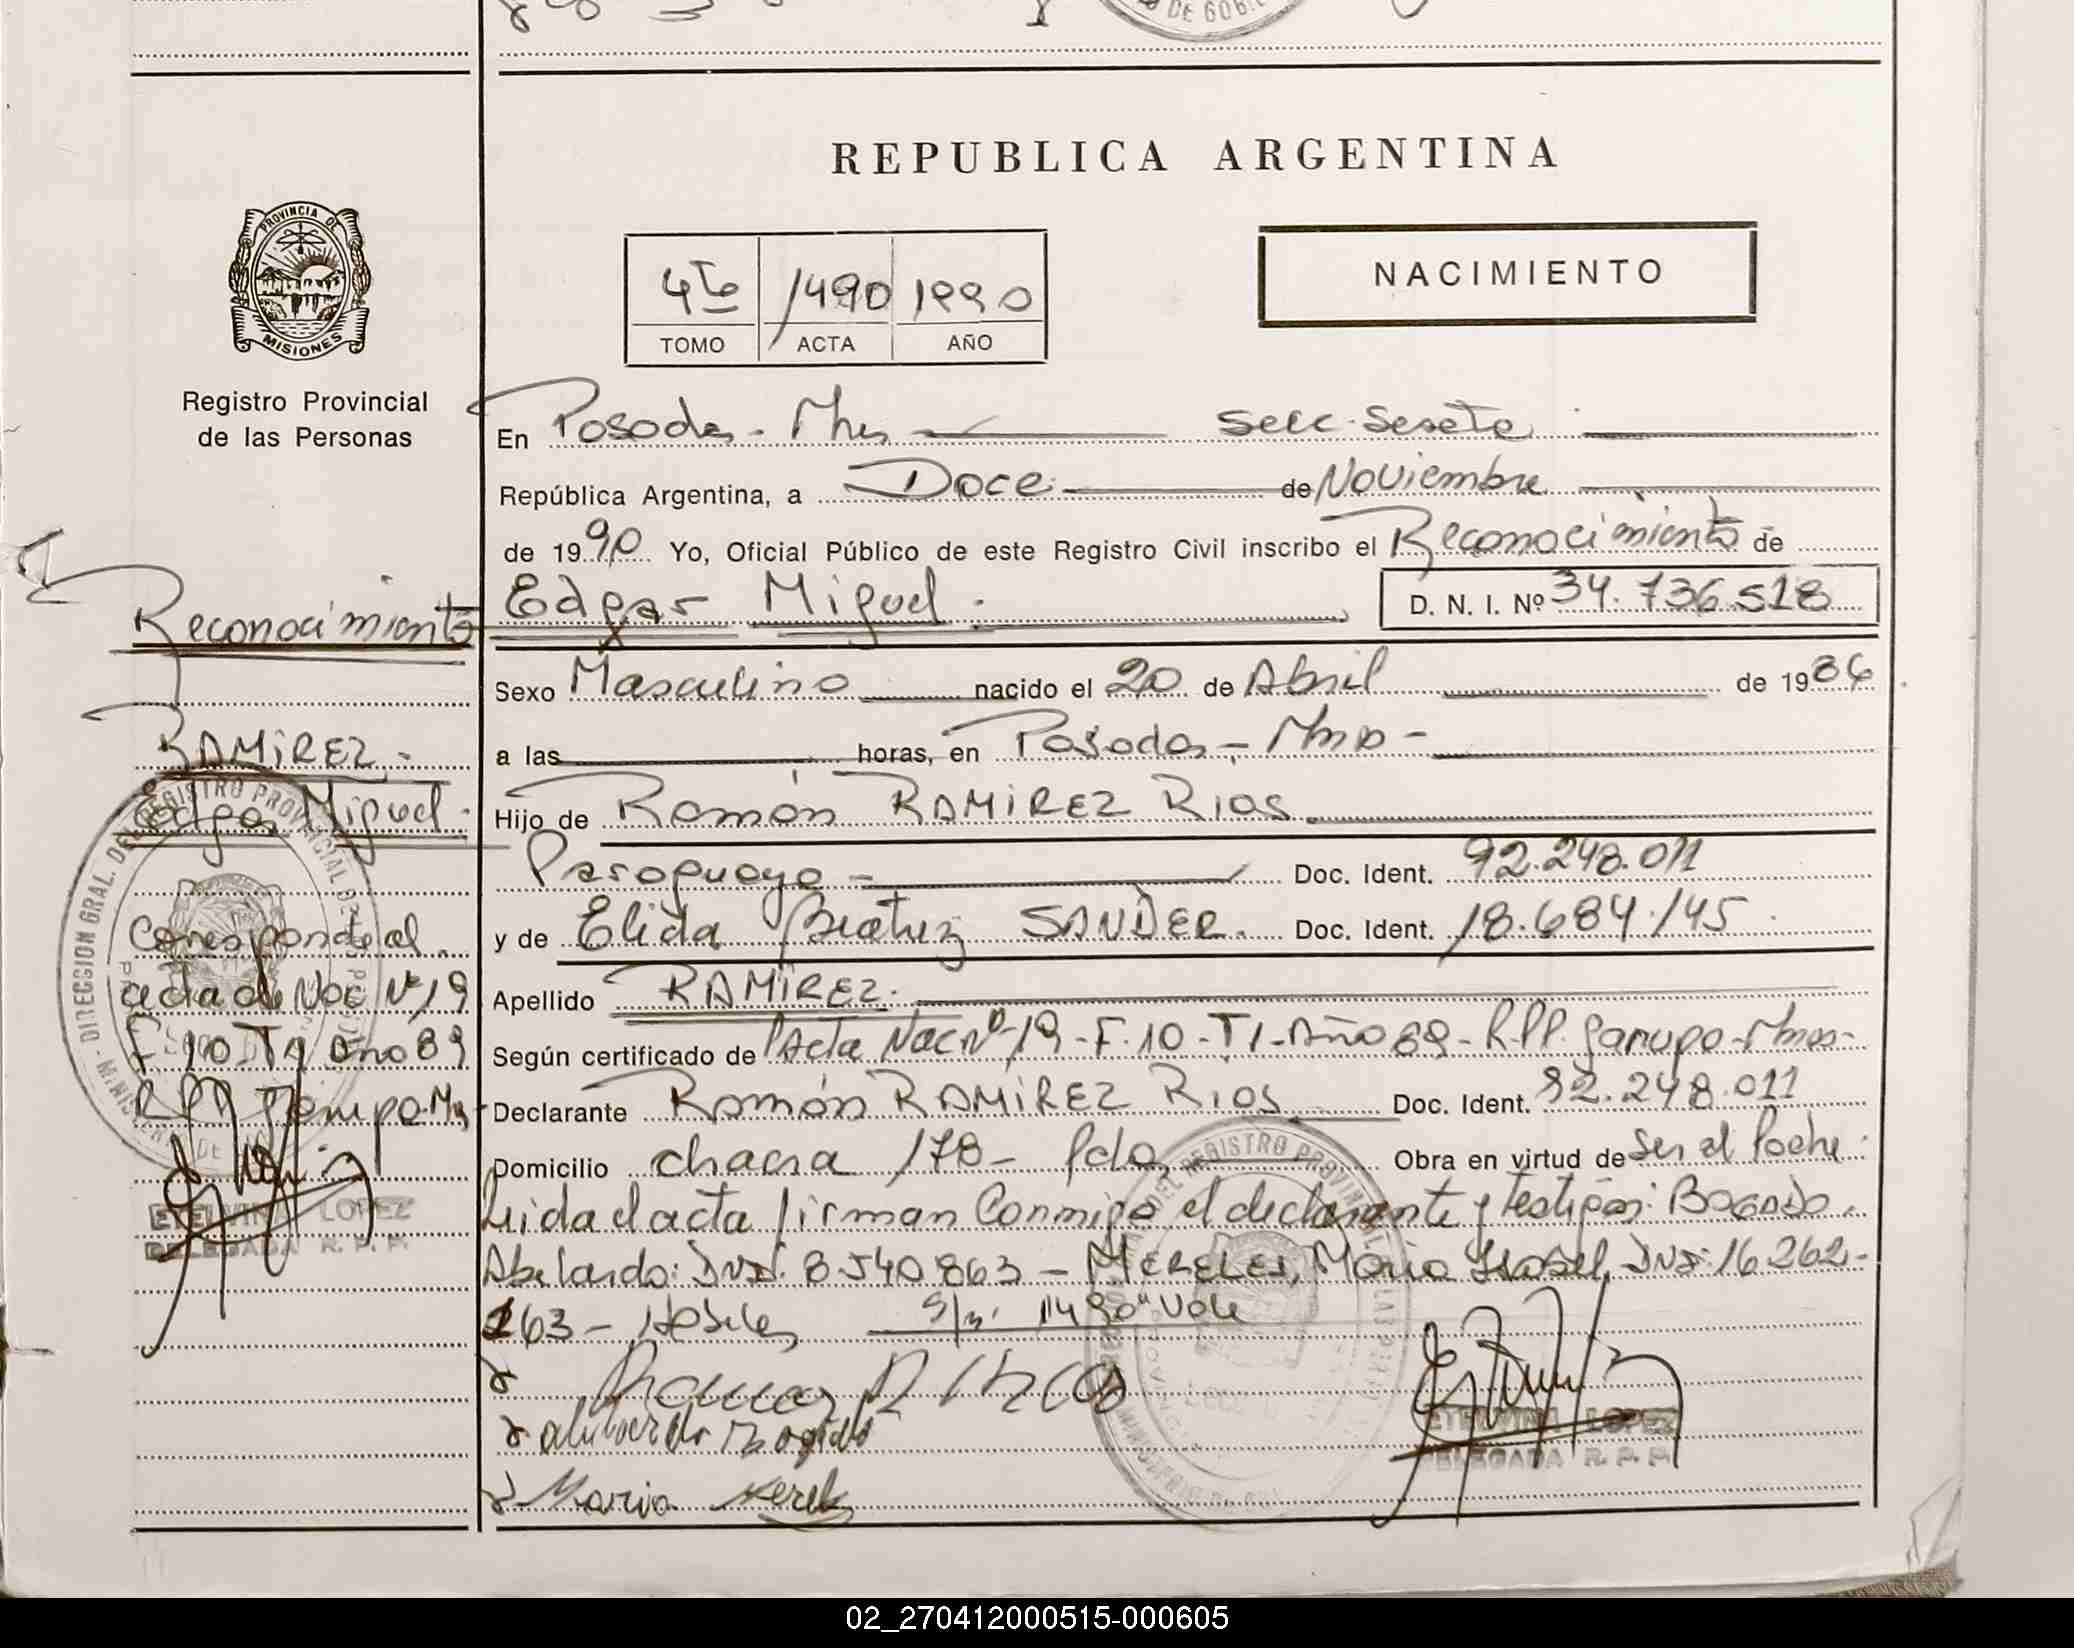 DE GOB.
REPUBLICA ARGENTINA
PROVINCIA DE
MISIONES
4to 1490 1990
TOMO ACTA AÑO
NACIMIENTO
Registro Provincial
de las Personas
En Posadas - Mnes secc. Sexta
República Argentina, a Doce de Noviembre
de 1990 Yo, Oficial Público de este Registro Civil inscribo el Reconocimiento de
Edgar Miguel. D. N. I. Nº 34.736.518
Sexo Masculino nacido el 20 de Abril de 1986
a las horas, en Posadas - Mnes -
Hijo de Ramón RAMIREZ RIOS
Paraguayo - Doc. Ident. 92.248.011
y de Elida Beatriz SANDER. Doc. Ident. 18.684.145
Apellido RAMIREZ.
Según certificado de Acta Nac Nº 19 - F. 10 - T 1 - Año 89 - R.P.P. Garupa - Mnes -
Declarante Ramón RAMIREZ RIOS Doc. Ident. 92.248.011
Domicilio chacra 178 - Pdas Obra en virtud de Ser el Padre.
Leida el acta firman Conmigo el declarante y testigos: BOGADO.
Abelardo: DNI. 8.540.863 - MERELES, Maria Isabel, DNI: 16.262-
263 - Hábiles s/r: "1490" Vale
Maria
ETELVINA LOPEZ
DELEGADA R. P. P.
Reconocimiento
RAMIREZ -
Edgar Miguel.
Corresponde al
acta de Nac Nº 19
F 10 T 1 año 89
RPP Garupa Mns
ETELVINA LOPEZ
DELEGADA R. P. P.
02_270412000515-000605